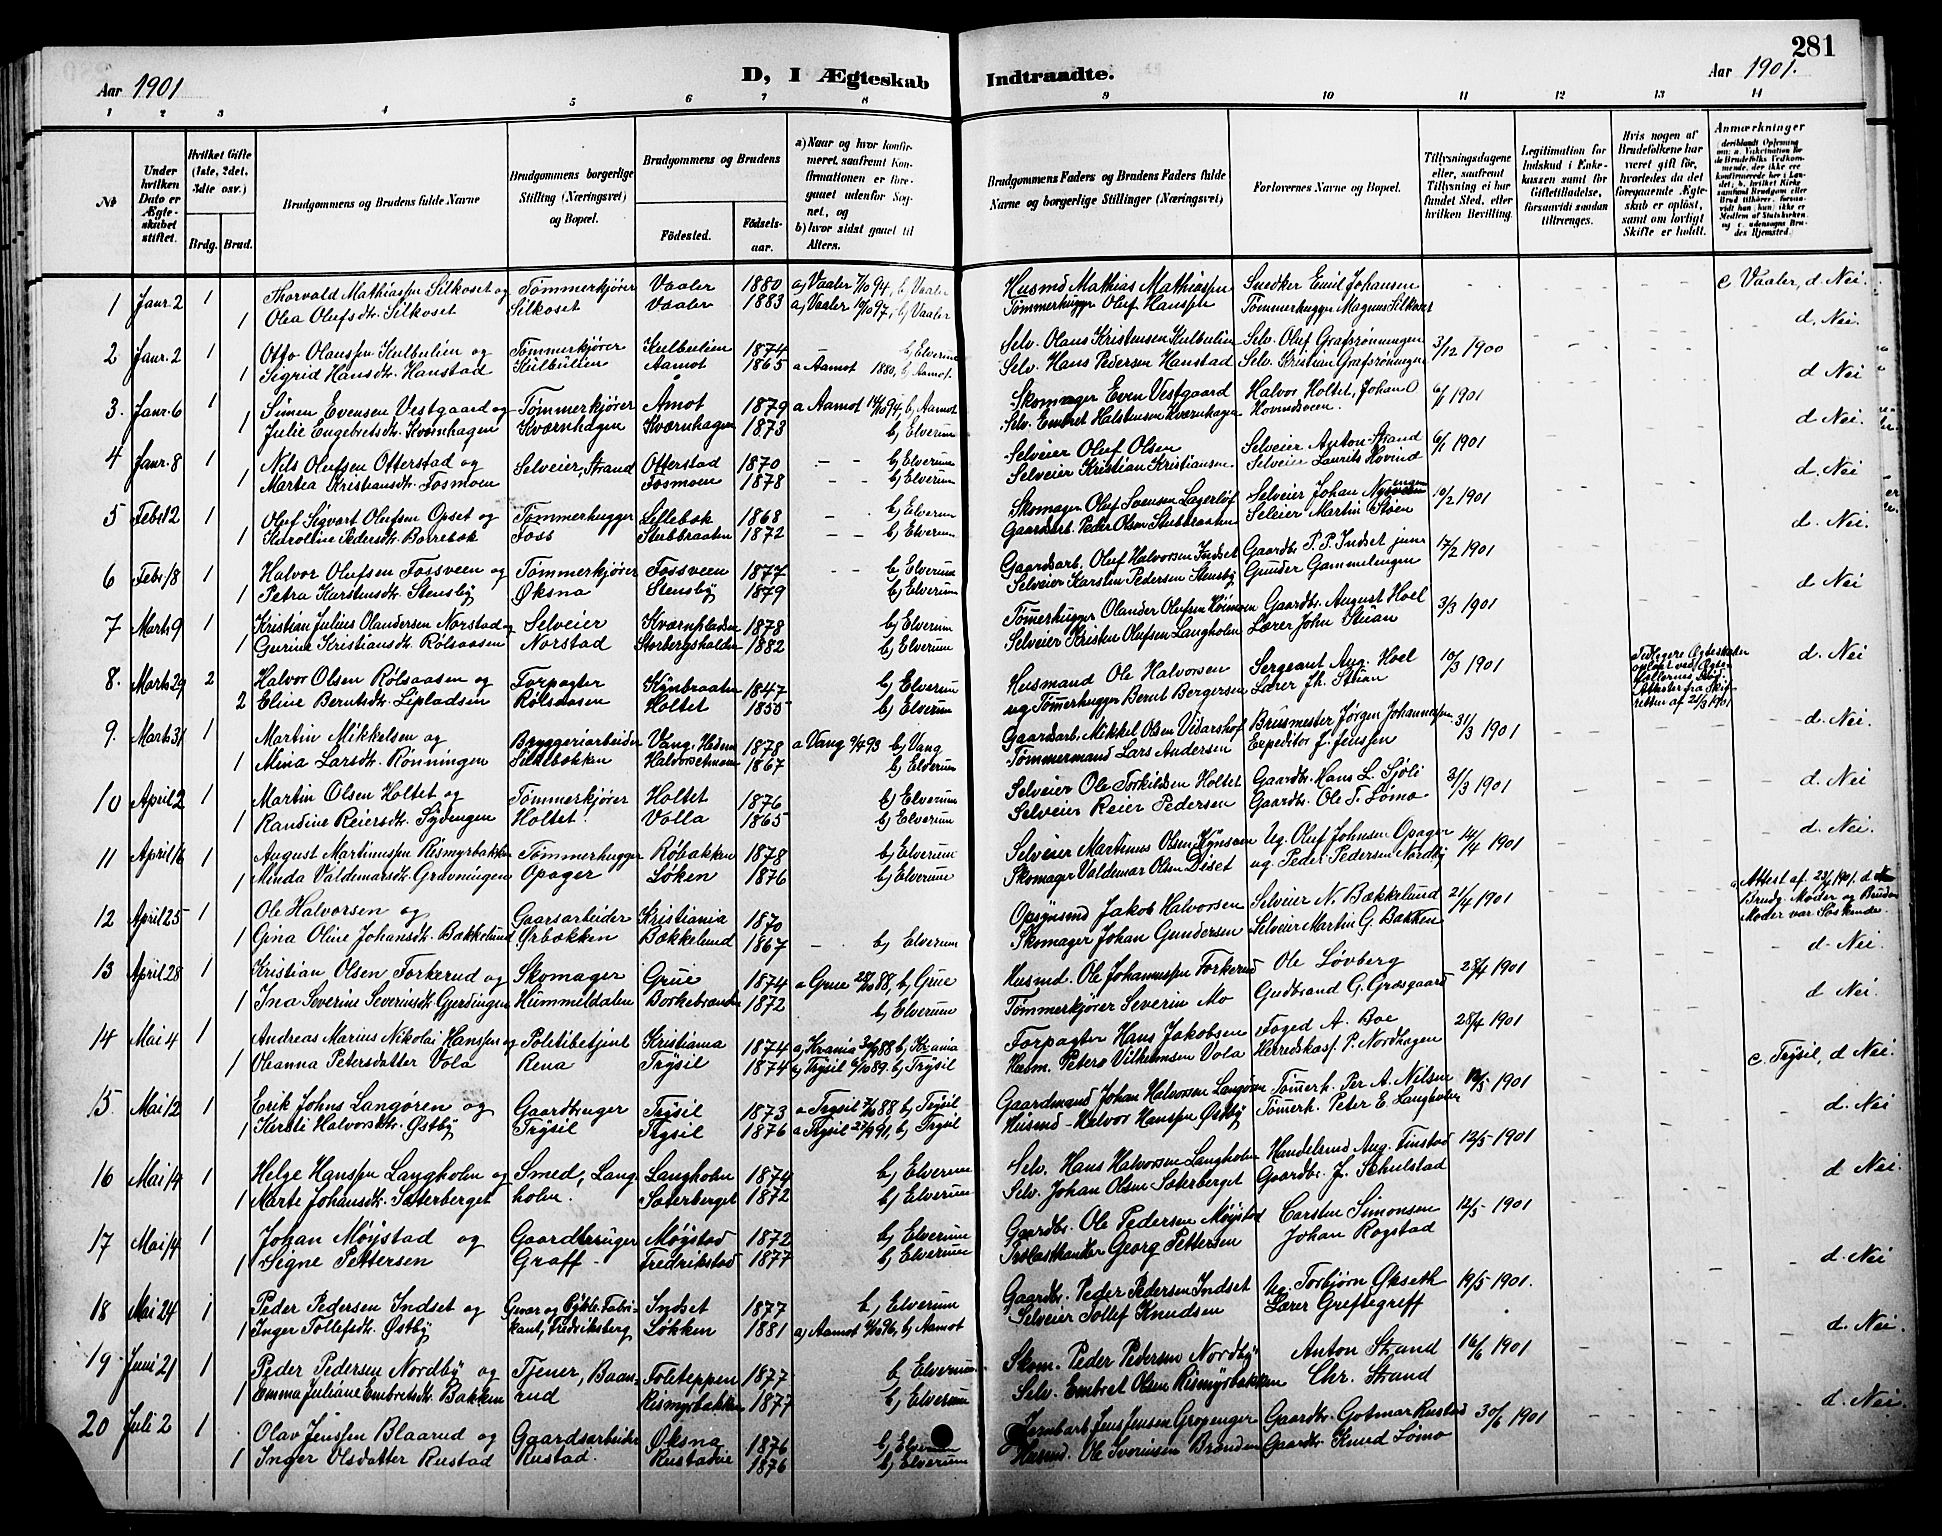 281
Aar 1901
D, I Ægteskab Indtraadte.
Aar 1901.
1 2 3 4 5 6 7 8 9 10 11 12 13 14
№
Under hvilken Dato er Ægteskabet stiftet.
Hvilket Gifte (1ste, 2det, 3die osv.)
Brdg. Brud.
Brudgommens og Brudens fulde Navne
Brudgommens borgerlige Stilling (Næringsvei) og Bopæl.
Brudgommens og Brudens
Fødested. Fødselsaar.
a) Naar og hvor konfirmeret, saafremt Konfirmationen er foregaaet udenfor Sognet, og b) hvor sidst gaaet til Alters.
Brudgommens Faders og Brudens Faders fulde Navne og borgerlige Stillinger (Næringsvei)
Forlovernes Navne og Bopæl.
Tillysningsdagene eller, saafremt Tillysning ei har fundet Sted, efter hvilken Bevilling.
Legitimation for Indskud i Enkekassen samt for Giftetilladelse, forsaavidt saadan tiltrænges.
Hvis nogen af Brudefolkene har været gift før, hvorledes da det foregaaende Ægteskab er opløst, samt om lovligt Skifte er holdt.
Anmærkninger
1 Janr 2 1 Thorvald Mathiassen Silkoset og Tømmerkjører Vaaler 1880 a) Vaaler 7/10 94, b) Vaaler Husmd Mathias Mathiassen Snedker Emil Johansen c Vaaler, d. Nei.
1 Olea Olufsdtr. Silkoset Silkoset Vaaler 1883 a) Vaaler 10/10 97, b) Vaaler Tømmerhugger Oluf Hanssen Tømmerhugger Magnus Silkoset
2 Janr. 2 1 Otto Olanssen Kulbulien og Tømmerkjører Kulbulien 1874 b) Elverum Selv. Olaus Kristensen Kulbulien Selv. Oluf Grafsrønningen 3/12 1900 d. Nei.
1 Sigrid Hansdtr. Hanstad Kulbulien Aamot 1865 a Aamot 1880, b) Aamot. Selv. Hans Pedersen Hanstad Selv. Kristian Grafsrønningen
3. Janr. 6 1 Simen Evensen Vestgaard og Tømmerkjører Åmot 1879 a Aamot 14/10 94 b) Aamot Skomager Even Vestgaard Halvor Holtet, Johan O 6/1 1901 d. Nei
1 Julie Engebretsdtr. Kværnhagen Kværnhagen Kværnhagen 1873 b) Elverum Selv. Embret Halstensen Kværnhagen Hovindsveen.
4 Janr. 8 1 Nils Olufsen Otterstad og Selveier, Strand Otterstad 1870 b) Elverum Selveier Oluf Olsen Selveier Anton Strand 6/1 1901 d. Nei.
1 Martea Kristiansdtr. Fosmoen Fosmoen 1878 b) Elverum Selveier Kristian Kristiansen. Selveier Laurits Hovind
5 Febr 12 1 Oluf Sigvart Olufsen Opset og Tømmerhugger Lillebok 1868 b) Elverum Skomager Oluf Svensen Lagerløf Selveier Johan 10/2 1901 d. Nei
1 Karoline Pedersdtr. Borrebæk Foss Stubbraaten 1872 b) Elverum Gaardsarb. Peder Olsen Stubbraaten Seleier Martin Støen
6 Febr 18 1 Halvor Olufsen Fossveen og Tømmerkjører Fossveen 1877 b) Elverum Gaardsarb. Oluf Halvorsen Indset Gaardbr. P. P. Indset junr 17/2 1901 d. Nei
1 Petra Karstensdtr. Stensby Øksna Stensby 1879 b) Elverum Selveier Karsten Pedersen Stensby Gunder Gammelengen
7 Marts 9 1 Kristian Julius Olandersen Norstad og Selveier Kværnpladsen 1878 b) Elverum Tømmerhugger Olander Olufsen Gaardbr. August Hoel 3/3 1901 d. Nei
1 Gurine Kristiansdtr. Rølsaasen Norstad Storbergshalden 1882 b) Elverum Selveier Kristen Olufsen Langholen Lærer John Stuan
8. Marts 29 2 Halvor Olsen Rølsaasen og Forpagter Kynbraaten 1847 b) Elverum Husmand Ole Halvorsen Sergeant Aug. Hoel 10/3 1901 Tidligere Ægteskaber opløst ved Ægtefællernes Død. Attester fra Skifteretten af 21/3 1901 d. Nei
2 Eline Berntsdtr. Lipladsen Rølsaasen Holtet 1855 b) Elverum ug Tømmerhugger Bernt Bergersen Lærer Jh. Stuan
9. Marts 31 1 Martin Mikkelsen og Bryggeriarbeider Vang, Hedm 1878 a Vang 9/4 93 b) Vang Gaardsarb. Mikkel Olsen Vidarshof Brusmester Jørgen Johannessen 31/3 1901 d. Nei.
1 Mina Larsdtr. Rønningen Sillibakken Halvorsetmoen 1867 b) Elverum Tømmermand Lars Andersen Expeditor J. Jenssen
10 April 2 1 Martin Olsen Holtet og Tømmerkjører Holtet 1876 b) Elverum Selveier Ole Torkildsen Holtet Gaardbr. Hans L. Sjøli 31/3 1901 d. Nei
1 Randine Reiersdtr. Sydengen Holtet Volla 1865 b) Elverum Selveier Reier Pedersen Gaardbr. Ole T. Lømo
11 April 16 1 August Martinussen Rismyrbakken Tømmerhugger Røbakken 1878 b) Elverum Selveier Martinus Olsen Ug. Oluf Johnsen Opager 14/4 1901 d. Nei.
1 Minda Valdemarsdtr. Gravningen Opager Løken 1876 b) Elverum Skomager Valdemar Olsen Diset ug. Peder Pedersen Nordby
12 April 25 1 Ole Halvorsen og Gaarsarbeider Kristiania 1870 Opsynsmd Jakob Halvorsen Selveier N. Bækkelund 21/4 1901 Attest af 23/4 1901. d. Brudg. Moder og Brudens Moder var Søskende.
1 Gina Oline Johansdtr. Bækkelund Ørbækken Bækkelund 1867 b) Elverum Skomager Johan Gundersen Selveier Martin G. Bakken d. Nei.
13 April 28 1 Kristian Olsen Torkerud og Skomager Grue 1874 a Grue 28/10 88, b) Grue Husmd. Ole Johannessen Torkerud Ole Løvberg 28/4 1901 d. Nei.
1 Ina Severine Severinsdtr. Gjerdingen Hummeldalen Borkebranden 1872 b) Elverum Tømmerkjører Severin Mo Gudbrand G. Græsgaard
14 Mai 4 1 Andreas Marius Nikolai Hanssen og Politibetjent Kristiania 1874 a) Krania 30/9 88 b) Krania Forpagter Hans Jakobsen Foged A. Boe 28/4 1901 c. Trysil, d Nei.
1 Oleanna Petersdatter Vola Rena Trysil 1874 a) Trysil 6/10 89. b) Trysil Husm. Peter Vilhelmsen Vola Herredskasf. P. Nordhagen
15. Mai 12 1 Erik Johns Langøren og Gaardbruger Trysil 1873 a Trysil 7/10 88 b) Trysil Gaardmand Johan Halvorsen Langøren Tømerh. Per A. Nilsen 12/5 1901 d. Nei
1 Kersti Halvorsdtr. Østby Trysil Trysil 1876 a Trysil 27/9 91, b) Trysil Husmd Halvor Hanssen Østby Tømerh. Peter E. Langholen
16 Mai 14 1 Helge Hanssen Langholen og Smed, Lang- Langholen 1874 b) Elverum Selv. Hans Halvorsen Langholen Handelsmd Aug. Finstad 12/5 1901 d Nei.
1 Marte Johansdtr. Sæterberget holen. Sæterberget 1872 b) Elverum Selv. Johan Olsen Sæterberget Gaardbr. J. Schulstad
17 Mai 14 1 Johan Møystad og Gaardbruger Møystad 1872 b) Elverum Gaardbr. Ole Pedersen Møystad Carsten Simonsen 12/5 1901 d. Nei
1 Signe Pettersen Graff Fredrikstad 1877 b) Elverum Trælasthandler Georg Pettersen Johan Rogstad
18 Mai 24 1 Peder Pedersen Indset og Indset 1877 b) Elverum Gaardbr. Peder Pedersen Indset Ug. Torbjørn Økseth 19/5 1901. d. Nei.
1 Inger Tollefsdtr. Østby kant, Fredriksberg Løkken 1881 a) Aamot 4/10 96, b) Aamot Selveier Tollef Knudsen Lærer Greftegreff
19 Juni 21 1 Peder Pedersen Nordby og Tjener, Baan- Toleteppen 1877 b) Elverum Skom. Peder Pedersen Nordby Anton Strand 16/6 1901 d. Nei.
1 Emma Juliane Embretsdtr. Bakken rud Rismyrbakken 1877 b) Elverum Selv. Embret Olsen Rismyrbakken Chr. Strand
20 Juli 2 1 Olav Jenssen Blaarud og Gaardsarbeider Øksna 1876 b) Elverum Jernbarb. Jens Jensen Gropenger Gaardbr. Gotmar Rustad 30/6 1901
1 Inger Olsdatter Rustad Rustad. Rustadvie 1876 b) Elverum Husmd. Ole Iversen Branden Gaardbr. Knud Lømo